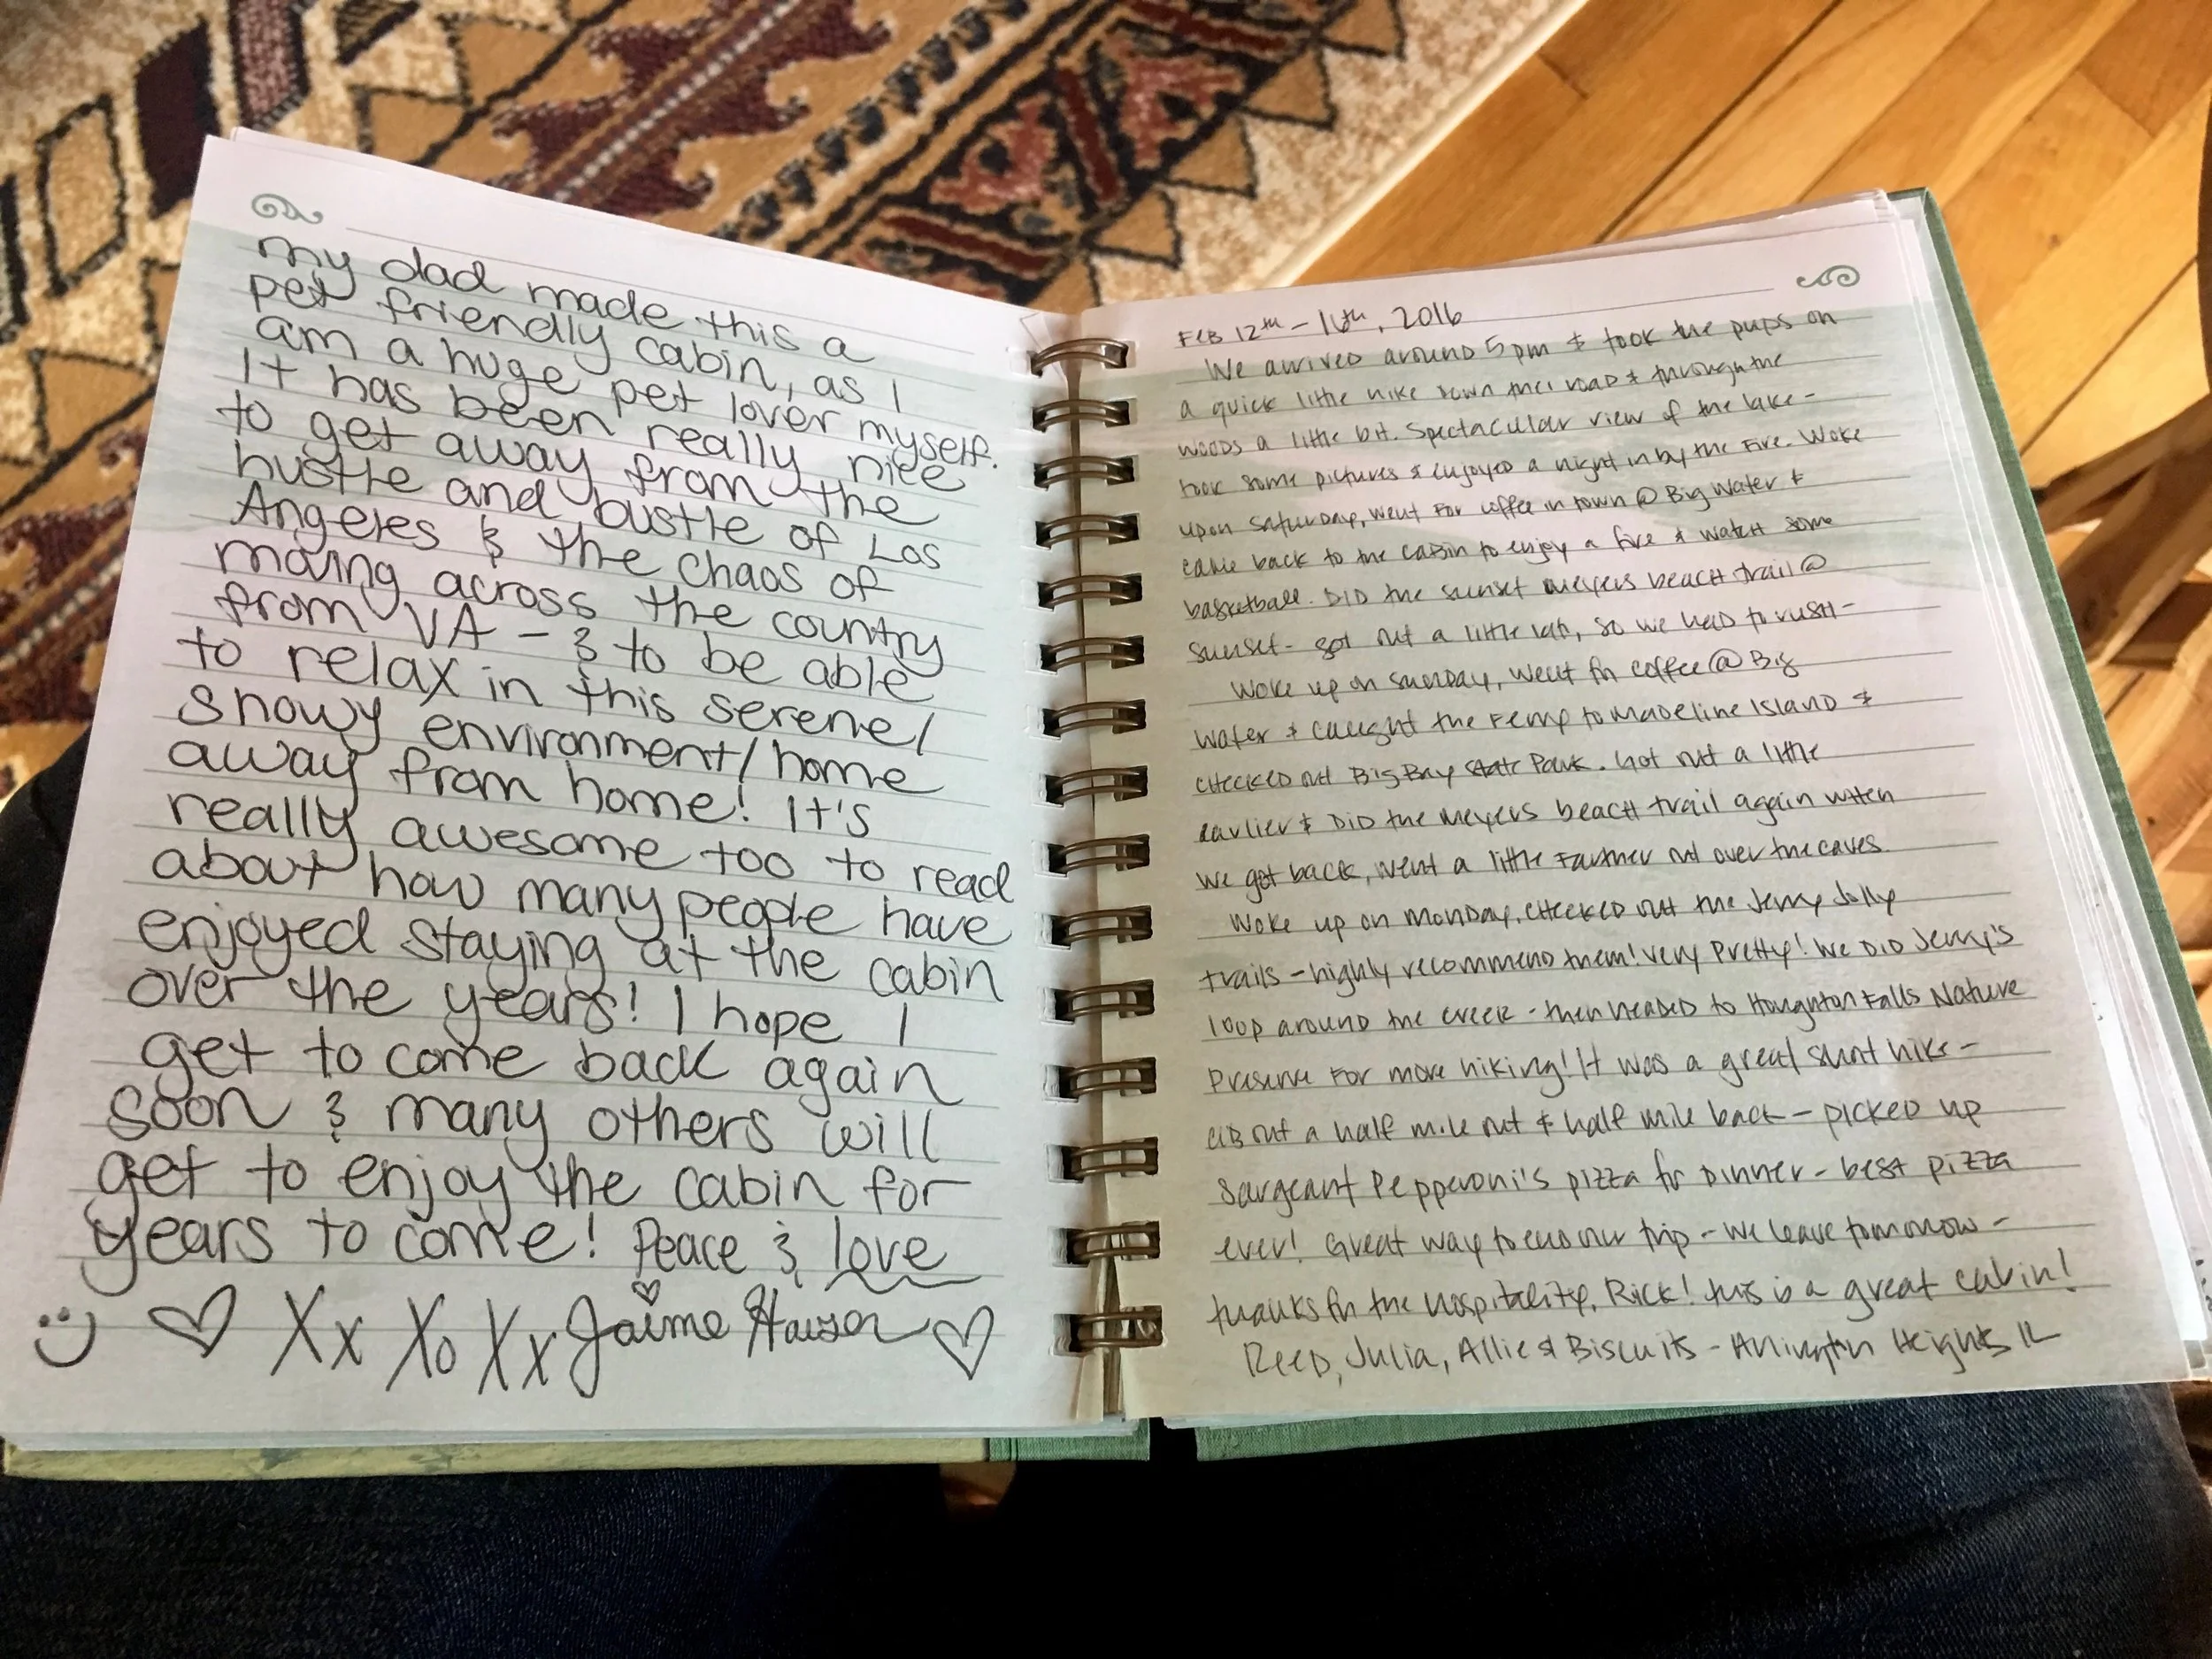 my dad made this a
pet friendly cabin, as I
am a huge pet lover myself.
It has been really nice
to get away from the
hustle and bustle of Los
Angeles & the chaos of
moving across the country
from VA - & to be able
to relax in this serene/
snowy environment/home
away from home! It's
really awesome too to read
about how many people have
enjoyed staying at the cabin
over the years! I hope I
get to come back again
soon & many others will
get to enjoy the cabin for
years to come! Peace & love
Xx Xo Xx Jaime Hauser
FEB 12th - 16th, 2016
We arrived around 5pm & took the pups on
a quick little hike down the road & through the
woods a little bit. Spectacular view of the lake -
took some pictures & enjoyed a night in by the fire. Woke
upon Saturday, went for coffee in town @ Big Water &
came back to the cabin to enjoy a fire & watch some
basketball. DID the sunset Meyers beach trail @
sunset - got out a little late, so we had to rush -
Woke up on Sunday, went for coffee @ Big
Water & caught the Ferry to Madeline Island &
checked out Big Bay State Park. Got out a little
earlier & DID the Meyers beach trail again when
we got back, went a little farther out over the caves.
Woke up on Monday, checked out the Jerry Jolly
trails - highly recommend them! Very Pretty! We DID Jerry's
loop around the creek - then headed to Houghton Falls Nature
Preserve for more hiking! It was a great short hike -
about a half mile out & half mile back - picked up
Sargeant Pepperoni's pizza for dinner - best pizza
ever! Great way to end our trip - we leave tomorrow -
thanks for the hospitality, Rick! This is a great cabin!
Reed, Julia, Allie & Biscuits - Arlington Heights IL